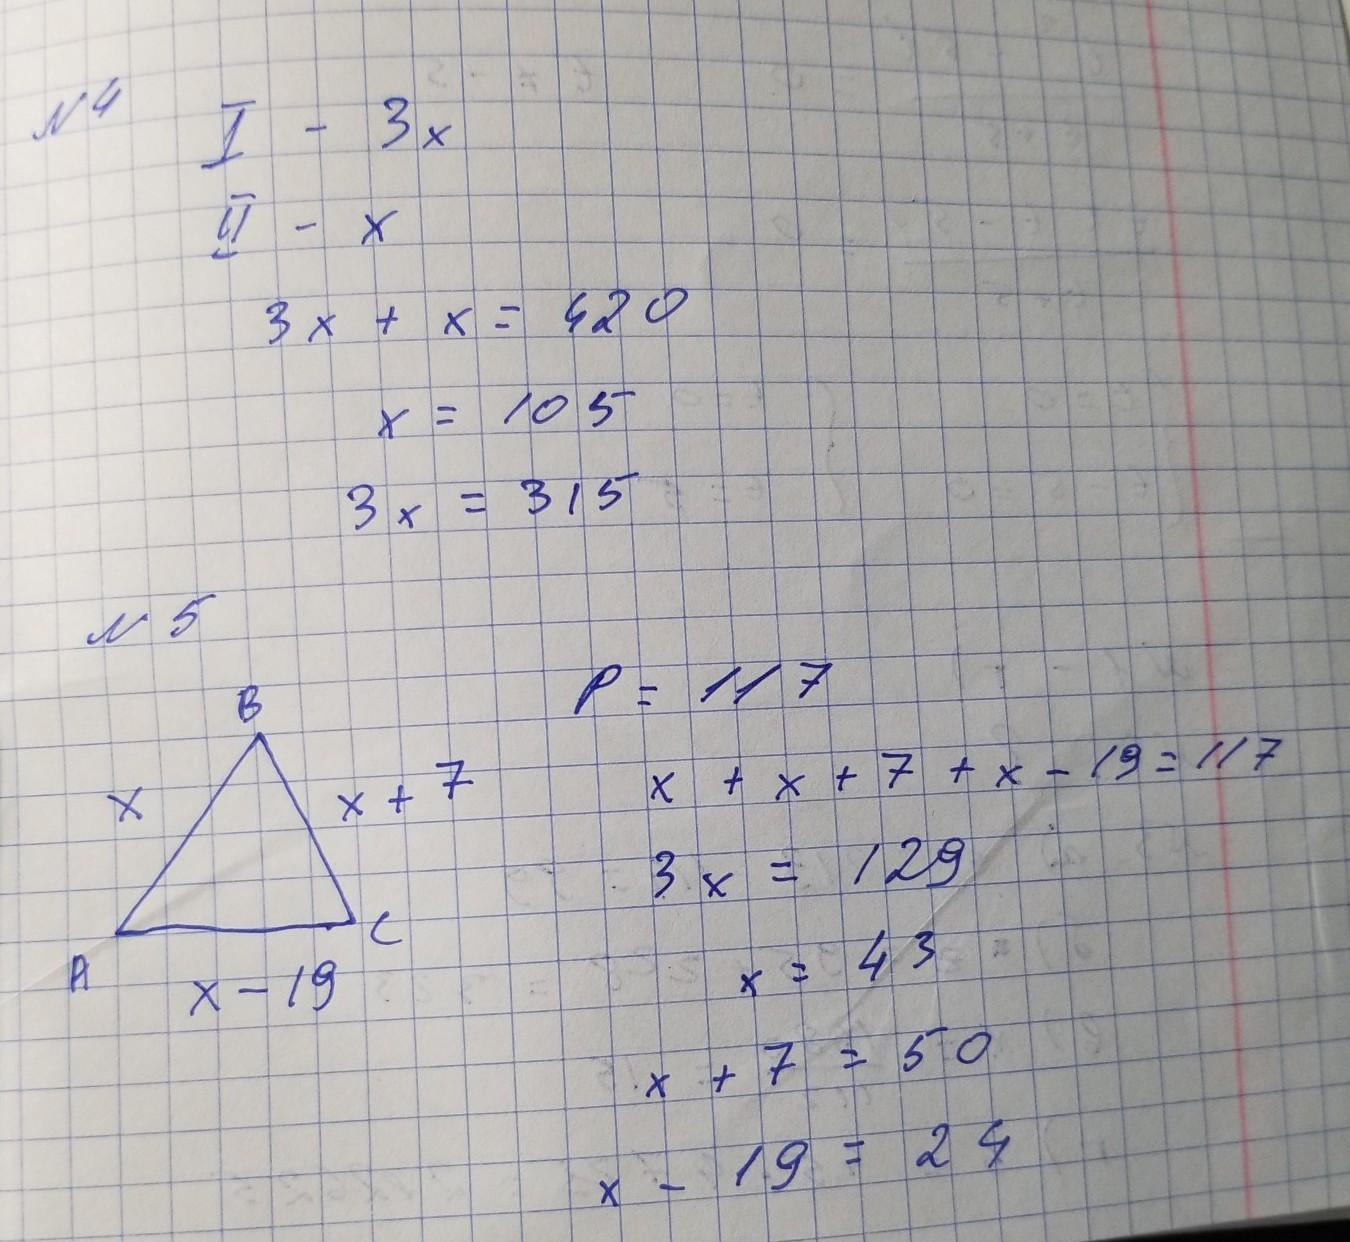 N 4
I - 3x
II - x
3x + x = 420
x = 105
3x = 315
N 5
P = 117
B
x
x + 7
A
C
x - 19
x + x + 7 + x - 19 = 117
3x = 129
x = 43
x + 7 = 50
x - 19 = 24